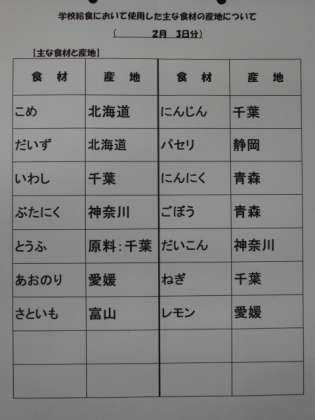 学校給食において使用した主な食材の産地について
( 2月 3日分)
【主な食材と産地】
食 材 産 地 食 材 産 地
こめ 北海道 にんじん 千葉
だいず 北海道 パセリ 静岡
いわし 千葉 にんにく 青森
ぶたにく 神奈川 ごぼう 青森
とうふ 原料:千葉 だいこん 神奈川
あおのり 愛媛 ねぎ 千葉
さといも 富山 レモン 愛媛